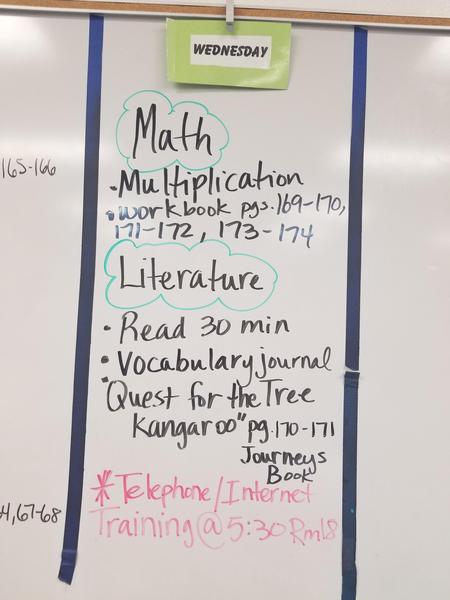 WEDNESDAY
165-166
Math
•Multiplication
•workbook pgs. 169-170,
171-172, 173-174
Literature
• Read 30 min
• Vocabulary journal
"Quest for the Tree
Kangaroo" pg. 170-171
Journeys
Book
4,67-68
*Telephone/Internet
Training@5:30 Rm18